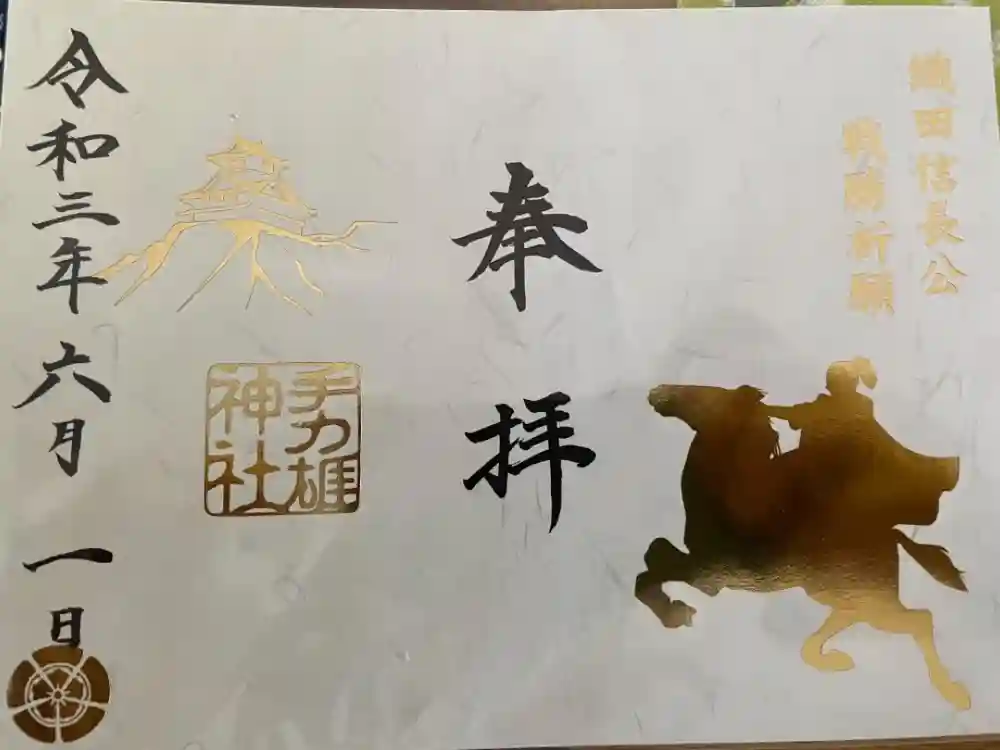 織田信長公
戦勝祈願
奉拝
手力雄
神社
令和三年六月一日